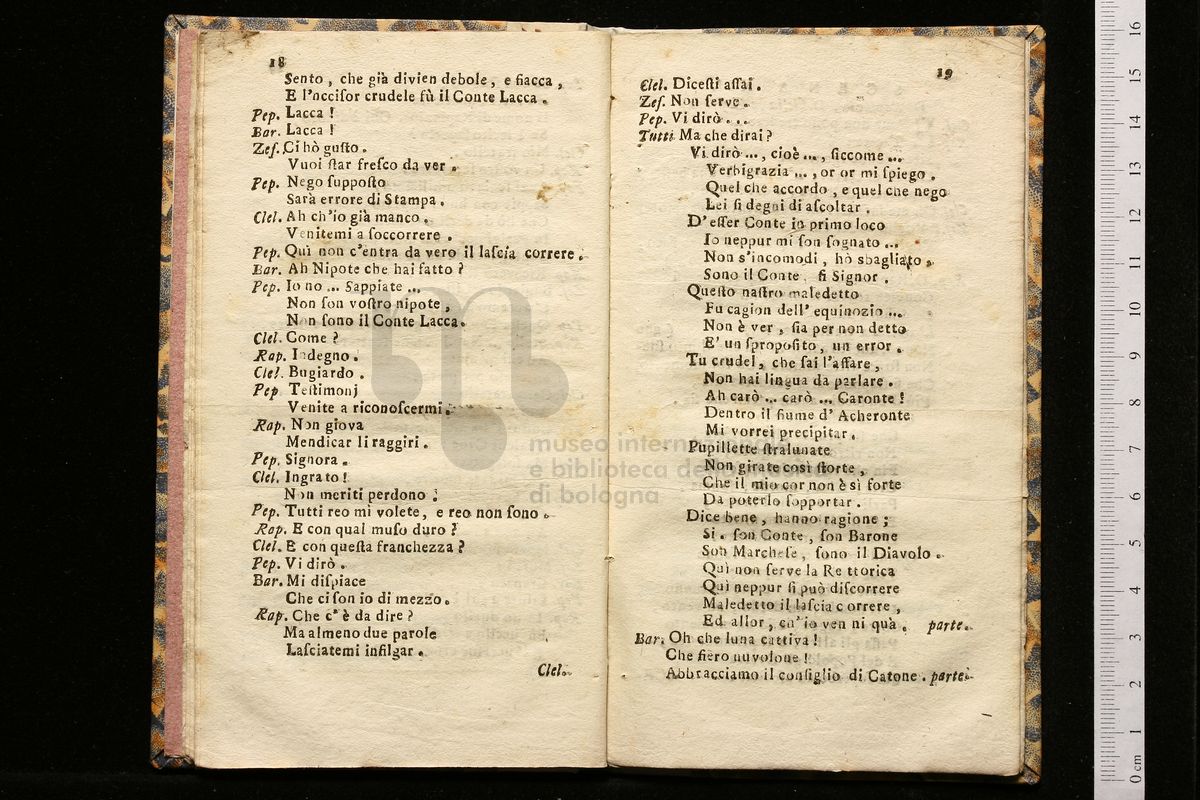 18
Sento , che già divien debole , e fiacca ,
E l'occisor crudele fù il Conte Lacca .
Pep. Lacca !
Bar. Lacca !
Zef. Ci hò gusto .
Vuoi ſtar freſco da ver .
Pep. Nego ſuppoſto
Sarà errore di Stampa .
Clel. Ah ch'io già manco .
Venitemi a ſoccorrere .
Pep. Quì non c'entra da vero il laſcia correre .
Bar. Ah Nipote che hai fatto ?
Pep. Io no ... Sappiate ...
Non ſon voſtro nipote ,
Non ſono il Conte Lacca .
Clel. Come ?
Rap. Indegno .
Clel. Bugiardo .
Pep. Teſtimonj
Venite a riconoſcermi .
Rap. Non giova
Mendicar li raggiri .
Pep. Signora .
Clel. Ingrato !
Non meriti perdono .
Pep. Tutti reo mi volete , e reo non ſono .
Rap. E con qual muſo duro ?
Clel. E con queſta franchezza ?
Pep. Vi dirò .
Bar. Mi diſpiace
Che ci ſon io di mezzo .
Rap. Che c'è da dire ?
Ma almeno due parole
Laſciatemi infilgar .
Clel.
19
Clel. Diceſti aſſai .
Zef. Non ſerve .
Pep. Vi dirò . . .
Tutti Ma che dirai ?
Vi dirò ... , cioè ... , ſiccome ...
Verbigrazia ... , or or mi ſpiego .
Quel che accordo , e quel che nego
Lei ſi degni di aſcoltar .
D'eſſer Conte in primo loco
Io neppur mi ſon ſognato ...
Non s'incomodi , hò sbagliato .
Sono il Conte . ſi Signor .
Queſto naſtro maledetto
Fu cagion dell' equinozio ...
Non è ver , ſia per non detto
E' un ſpropoſito , un error .
Tu crudel , che ſai l'affare ,
Non hai lingua da parlare .
Ah carò ... carò ... Caronte !
Dentro il fiume d' Acheronte
Mi vorrei precipitar .
Pupillette ſtralunate
Non girate così ſtorte ,
Che il mio cor non è sì forte
Da poterlo ſopportar .
Dice bene , hanno ragione ;
Si . ſon Conte , ſon Barone
Son Marcheſe , ſono il Diavolo .
Quì non ſerve la Rettorica
Quì neppur ſi può diſcorrere
Maledetto il laſcia correre ,
Ed allor , ch'io venni quà . parte .
Bar. Oh che luna cattiva !
Che fiero nuvolone !
Abbracciamo il conſiglio di Catone . parte .
museo internazionale
e biblioteca della musica
di bologna
0 cm 1 2 3 4 5 6 7 8 9 10 11 12 13 14 15 16